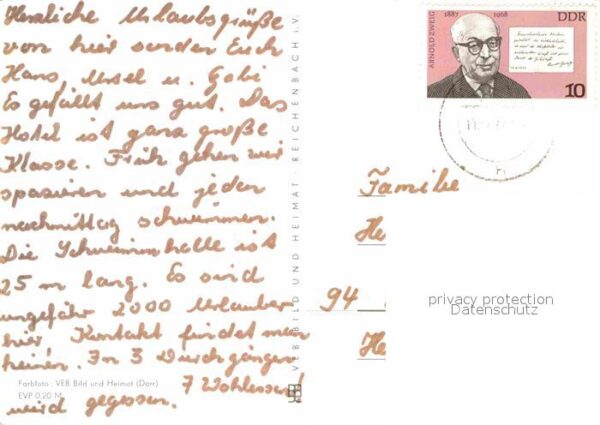 Herzliche Urlaubsgrüße
von hier senden Euch
Hans, Ursel u. Gabi
Es gefällt uns gut. Das
Hotel ist ganz große
Klasse. Früh gehen wir
spazieren und jeden
nachmittag schwimmen.
Die Schwimmhalle ist
25 m lang. Es sind
ungefähr 2000 Urlauber
hier Kontakt findet man
keinen. In 3 Durchgängen
7 Wahlessen!
wird gegessen.
Farbfoto: VEB Bild und Heimat (Darr)
EVP 0,20 M
VEB BILD UND HEIMAT · REICHENBACH i. V.
ARNOLD ZWEIG
1887 1968
DDR
10
Familie
He
94
He
privacy protection
Datenschutz